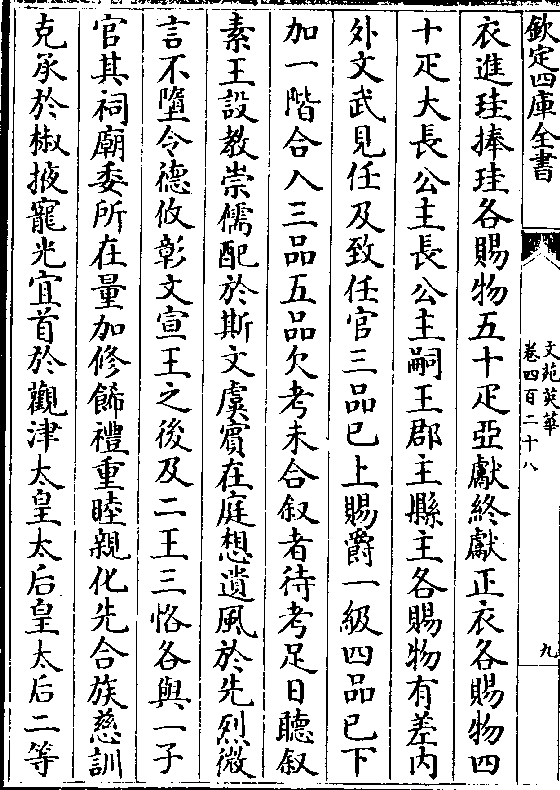 欽定四庫全書
文苑英華
卷四百二十八
九
衣進珪捧珪各賜物五十疋亞獻終獻正衣各賜物四
十疋大長公主長公主嗣王郡主縣主各賜物有差内
外文武見任及致任官三品已上賜爵一級四品已下
加一階合入三品五品欠考未合叙者待考足日聽叙
素王設教崇儒配於斯文虞賔在庭想遺風於先烈微
言不墮令德攸彰文宣王之後及二王三恪各與一子
官其祠廟委所在量加修餙禮重睦親化先合族慈訓
克承於椒掖寵光宜首於觀津太皇太后皇太后二等